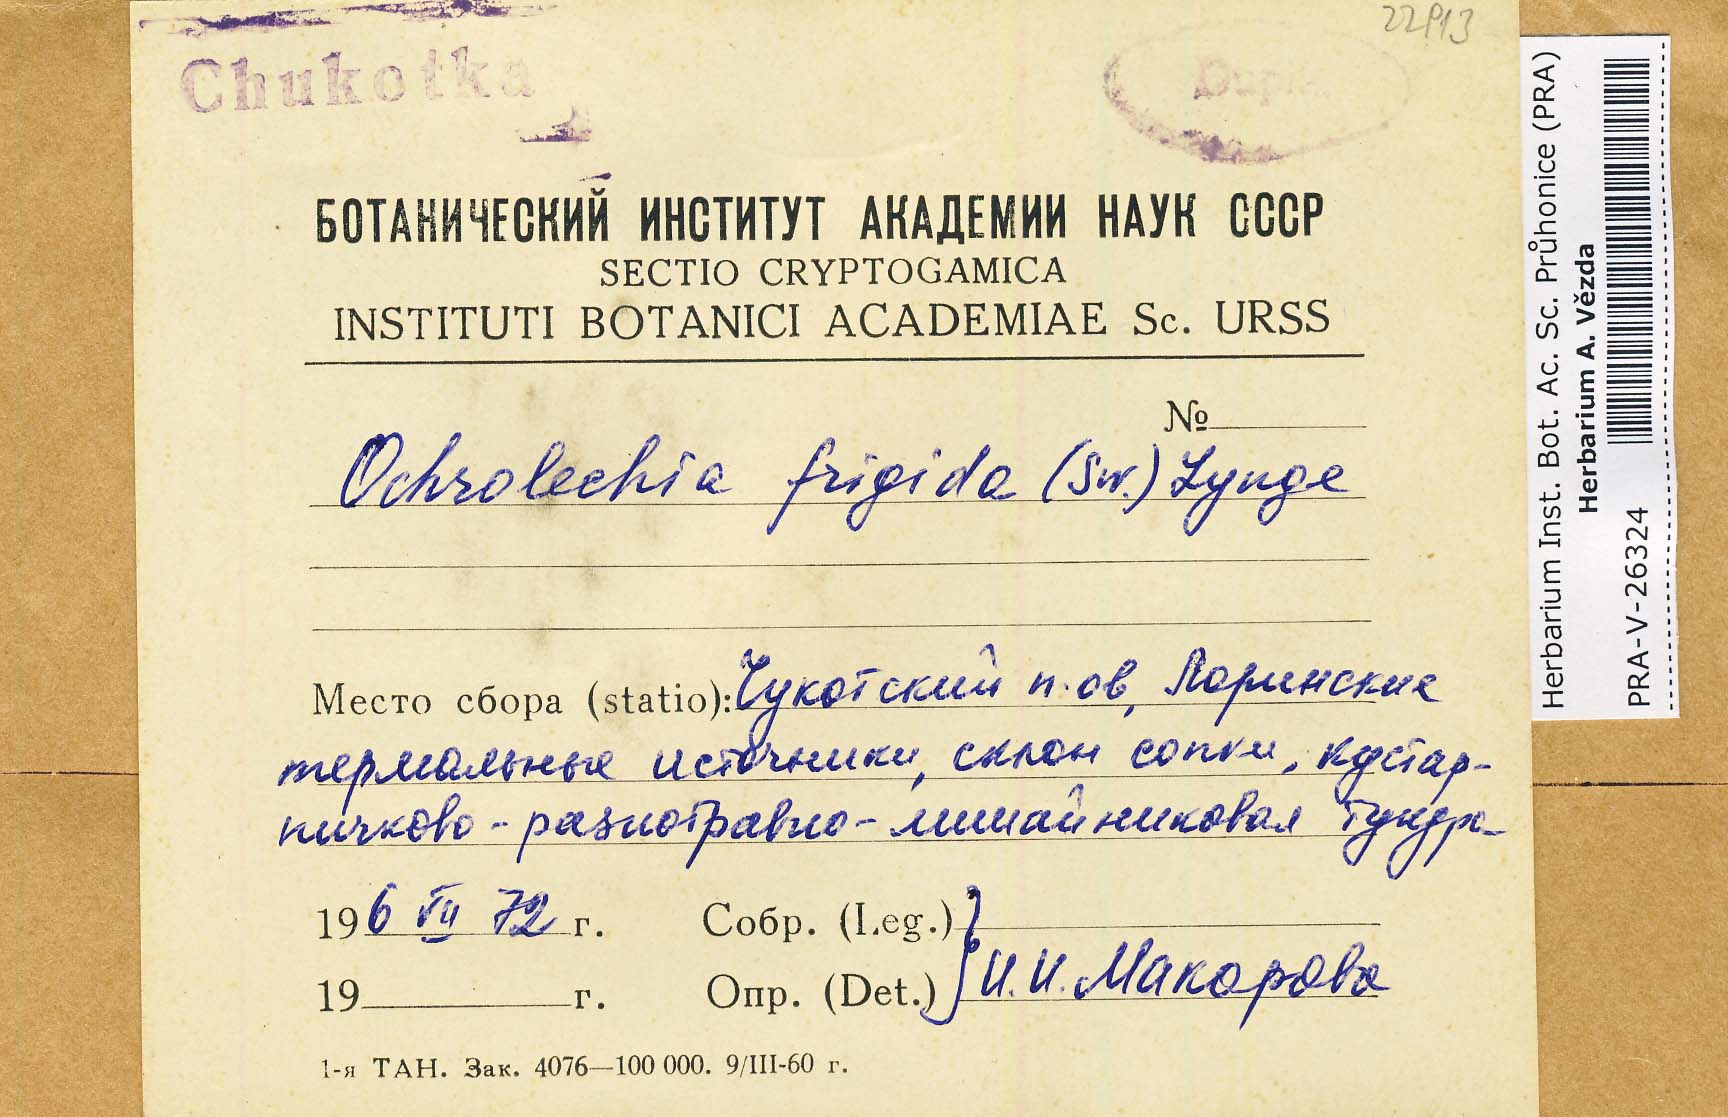 22P13
Chukotka
Dupl.
БОТАНИЧЕСКИЙ ИНСТИТУТ АКАДЕМИИ НАУК СССР
SECTIO CRYPTOGAMICA
INSTITUTI BOTANICI ACADEMIAE Sc. URSS
№
Ochrolechia frigida (Sw.) Lynge
Место сбора (statio): Чукотский п-ов, Лоринские
термальные источники, склон сопки, кустар-
ничково-разнотравно-лишайниковая тундра
196 VII 72 г. Собр. (Leg.)
19 г. Опр. (Det.) И.И. Макарова
1-я ТАН. Зак. 4076—100 000. 9/III-60 г.
Herbarium Inst. Bot. Ac. Sc. Průhonice (PRA)
Herbarium A. Vězda
PRA-V-26324